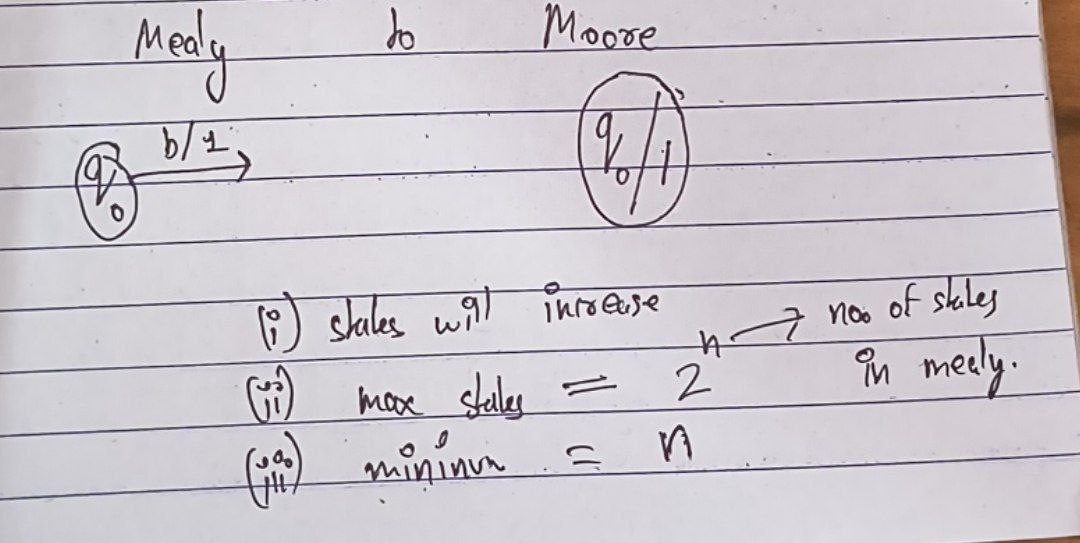 Mealy to Moore
q0 b/1 q0/1
(i) states will increase
(ii) max states = 2^n → no. of states
in mealy.
(iii) mininum = n